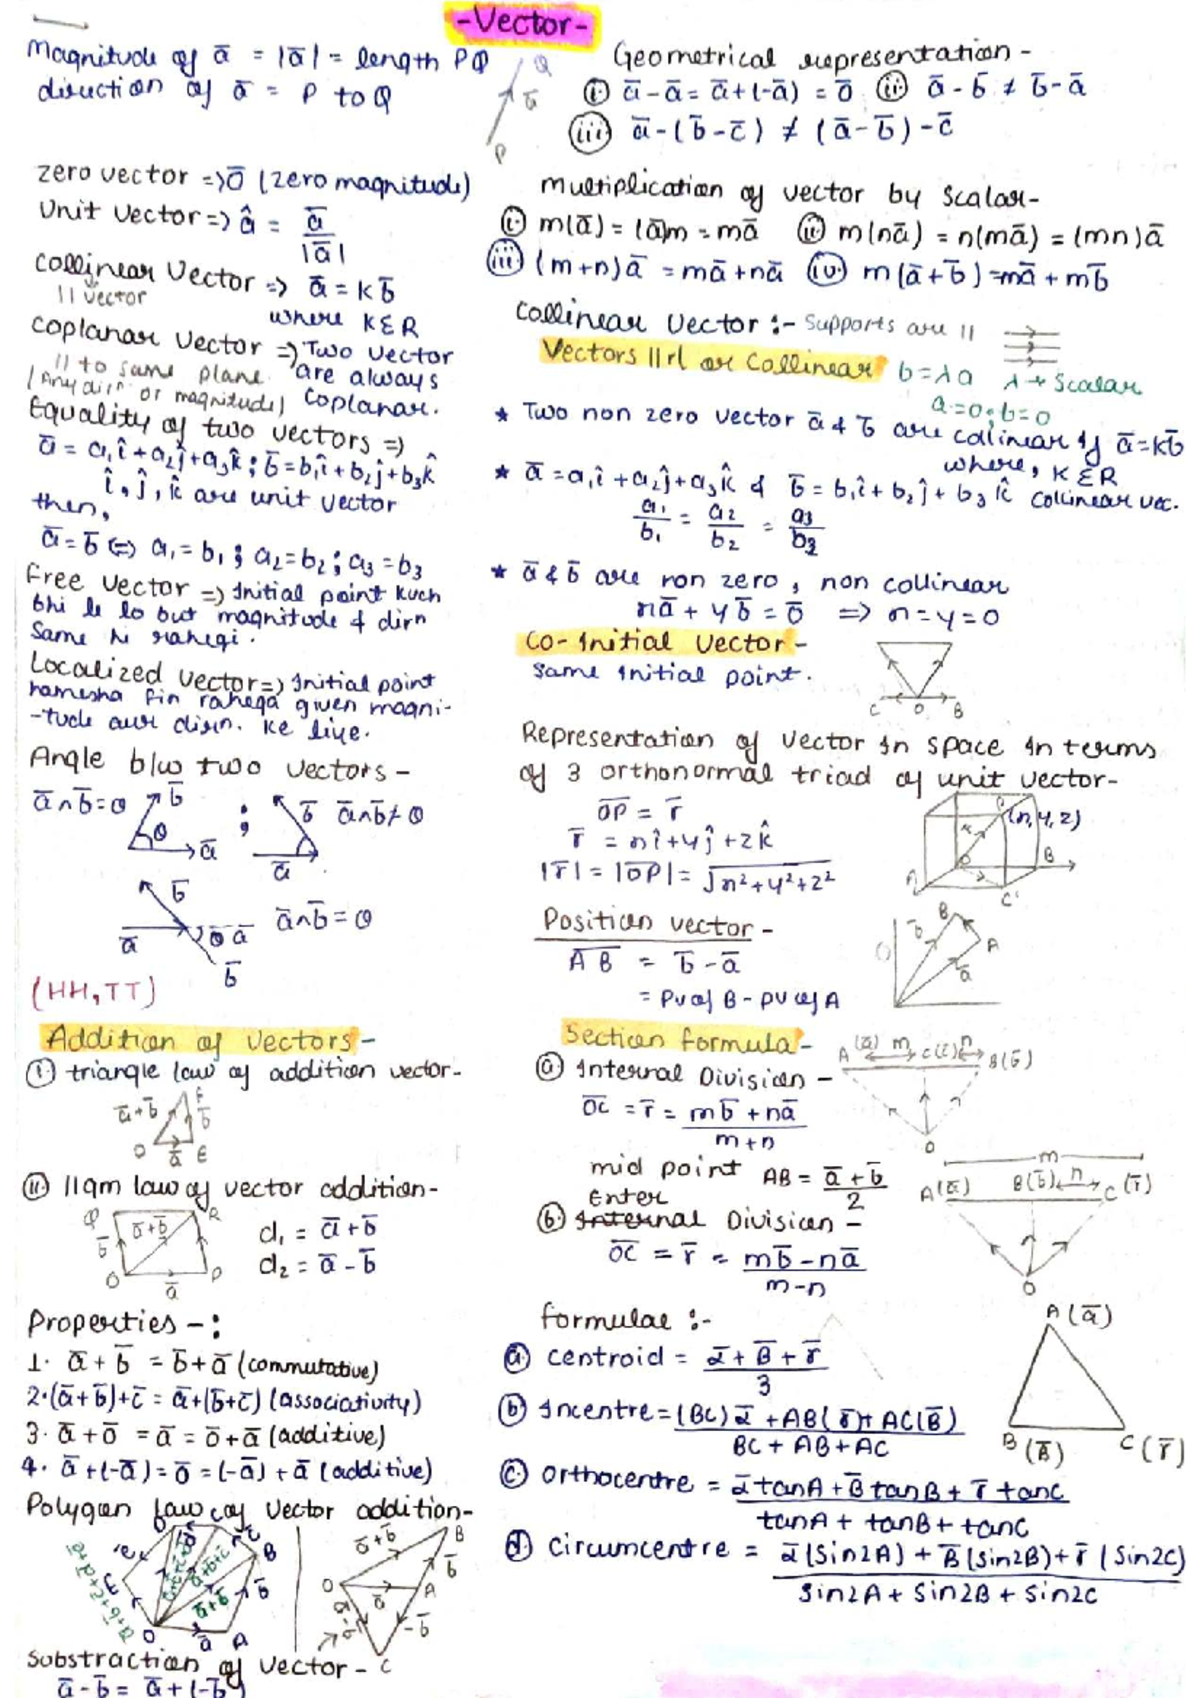 -Vector-
Magnitude of a̅ = |a̅| = length PQ
direction of a̅ = P to Q
Q
a̅
P
zero vector => 0̅ (zero magnitude)
Unit Vector => â = a̅ / |a̅|
Collinear Vector => a̅ = Kb̅
|| vector
where K∈R
Coplanar Vector => Two vector
|| to same plane are always
(Any dirⁿ or magnitude) Coplanar.
Equality of two vectors =>
a̅ = a₁î + a₂ĵ + a₃k̂ ; b̅ = b₁î + b₂ĵ + b₃k̂
î, ĵ, k̂ are unit vector
then,
a̅ = b̅ <=> a₁ = b₁ ; a₂ = b₂ ; a₃ = b₃
Free Vector => Initial point kuch
bhi le lo but magnitude & dirn
Same hi rahegi.
Localized vector => Initial point
hamesha fin rahega given magni-
-tude aur dirn. ke liye.
Angle b/w two Vectors -
a̅ ∧ b̅ = θ
b̅
θ
a̅
;
b̅
a̅ ∧ b̅ ≠ θ
a̅
b̅
a̅
θ a̅
b̅
a̅ ∧ b̅ = θ
(HH, TT)
Addition of Vectors -
(i) triangle law of addition vector -
a̅ + b̅
b̅
O a̅ E
(ii) ||gm law of vector addition -
Q R
a̅ + b̅
b̅
O P
a̅
d₁ = a̅ + b̅
d₂ = a̅ - b̅
Properties - :
1. a̅ + b̅ = b̅ + a̅ (commutative)
2. (a̅ + b̅) + c̅ = a̅ + (b̅ + c̅) (associativity)
3. a̅ + 0̅ = a̅ = 0̅ + a̅ (additive)
4. a̅ + (-a̅) = 0̅ = (-a̅) + a̅ (additive)
Polygon law of Vector addition -
B
b̅
a̅ + b̅
O a̅ A
a̅ + b̅
B
b̅
O a̅ A
-b̅
C
Substraction of Vector -
a̅ - b̅ = a̅ + (-b̅)
Geometrical representation -
(i) a̅ - a̅ = a̅ + (-a̅) = 0̅ (ii) a̅ - b̅ ≠ b̅ - a̅
(iii) a̅ - (b̅ - c̅) ≠ (a̅ - b̅) - c̅
multiplication of vector by Scalar -
(i) m(a̅) = (a̅)m = ma̅ (ii) m(na̅) = n(ma̅) = (mn)a̅
(iii) (m+n)a̅ = ma̅ + na̅ (iv) m(a̅ + b̅) = ma̅ + mb̅
Collinear Vector :- Supports are ||
Vectors ||rl or Collinear b = λa λ → Scalar
a = 0 ; b = 0
* Two non zero vector a̅ & b̅ are collinear if a̅ = kb̅
where, K∈R
* a̅ = a₁î + a₂ĵ + a₃k̂ & b̅ = b₁î + b₂ĵ + b₃k̂ Collinear vec.
a₁/b₁ = a₂/b₂ = a₃/b₃
* a̅ & b̅ are non zero, non collinear
xa̅ + yb̅ = 0̅ => x = y = 0
Co-Initial Vector -
Same Initial point.
C O B
Representation of Vector in space in terms
of 3 orthonormal triad of unit vector -
O̅P̅ = r̅
r̅ = xî + yĵ + zk̂
|r̅| = |O̅P̅| = √x² + y² + z²
(x, y, z)
B
A
C'
Position vector -
A̅B̅ = b̅ - a̅
= PV of B - PV of A
B
b̅
A
a̅
Section formula -
(a) Internal Division -
O̅C̅ = r̅ = (mb̅ + na̅) / (m + n)
A (a̅) m C(c̅) n B(b̅)
O
mid point AB = (a̅ + b̅) / 2
Enter
(b) Internal Division -
O̅C̅ = r̅ = (mb̅ - na̅) / (m - n)
m
A(a̅) B(b̅) n C(r̅)
O
formulae :-
(a) centroid = (α̅ + β̅ + r̅) / 3
(b) Incentre = ((BC)α̅ + AB(r̅) + AC(β̅)) / (BC + AB + AC)
(c) orthocentre = (α̅ tanA + β̅ tanB + r̅ tanC) / (tanA + tanB + tanC)
(d) circumcentre = (α̅(Sin2A) + β̅(sin2B) + r̅(Sin2C)) / (sin2A + Sin2B + Sin2C)
A(α̅)
B(β̅) C(r̅)